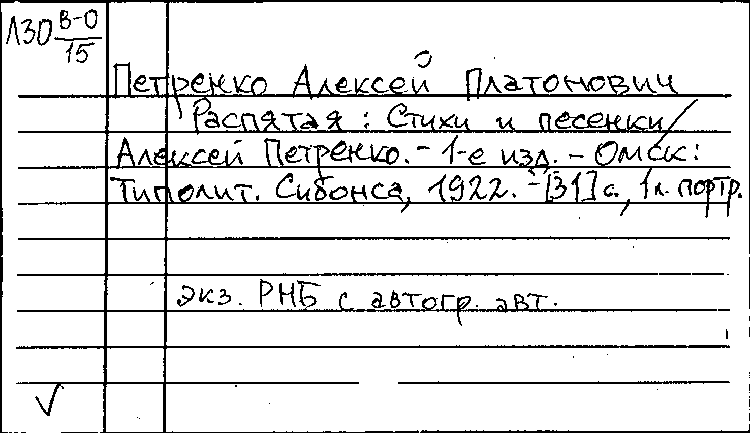 Л30 В-О
15
Петренко Алексей Платонович
Распятая : Стихи и песенки /
Алексей Петренко. - 1-е изд. - Омск :
Типолит. Сибопса, 1922. - [31] с., 1 л. портр.
экз. РНБ с автогр. авт.